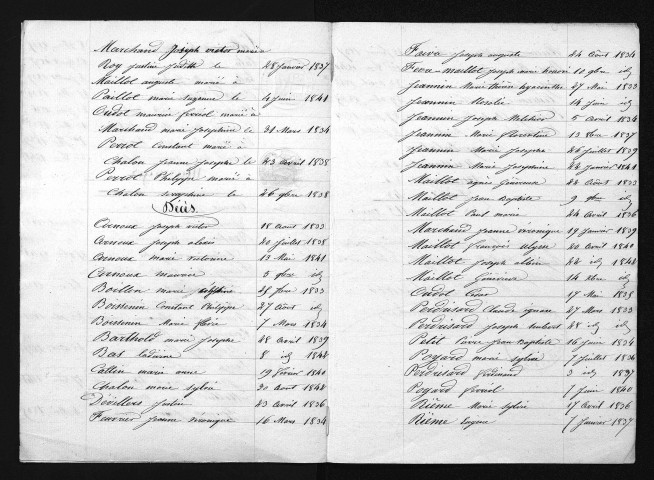 Marchand Joseph victor marié a
Roy justine judith le 28 Janvier 1837
Maillot auguste marié à
Paillot marie Suzanne le 4 juin 1841
Oudot maurice marié à
Marchand marie josephine le 31 Mars 1834
Perrot Constant marié à
Chalon jeanne josephe le 23 avril 1838
Perrot Philippe marié à
Chalon le 26 9bre 1838
Décès.
Arnoux Joseph victor 18 aout 1833
Arnoux joseph alexis 20 juillet 1838
Arnoux marie victorine 13 Mai 1841
Arnoux maurice 5 9bre id
Boillon marie 28 1833
Boissenin Constant Philippe 27 aout id
Boissenin Marie 7 Mars 1834
Barthold marie josephe 28 avril 1839
Bas 8 id 1842
Cattin marie anne 19 février 1840
Chalon marie sylvie 20 aout 1842
Devillers justin 23 avril 1836
Journot jeanne veronique 16 Mars 1834
Faivre joseph auguste 24 Aout 1834
Feva-Maillot joseph 10 9bre id
Jeannin Marie hyacinthe 27 Mai 1833
Jeannin Rosalie 14 juin id
Jeannin joseph Melchior 5 avril 1834
Jeannin Marie florentine 13 1837
Jeannin Marie Josephe 26 juillet 1839
Jeannin Marie Josephine 22 janvier 1841
Maillot agnès Généreuse 22 Aout 1833
Maillot jean Baptiste 9 id
Maillot Paul marie 24 Aout 1836
Marchand jeanne veronique 19 janvier 1839
Maillot françois 20 aout 1840
Maillot joseph albin 22 id 1842
Maillot Généreuse 14 id
Oudot 17 Mai 1835
Perdrisard Claude ignace 27 Mars 1833
Perdrisard Joseph 28 id id
Petit Pierre Jean Baptiste 16 juin 1834
Pogard marie sylvie 7 juillet 1834
Perdrisard ferdinand 3 id 1837
Pogard fériol 7 juin 1840
Rième Marie sylvie 17 avril 1836
Rième Eugene 7 janvier 1837